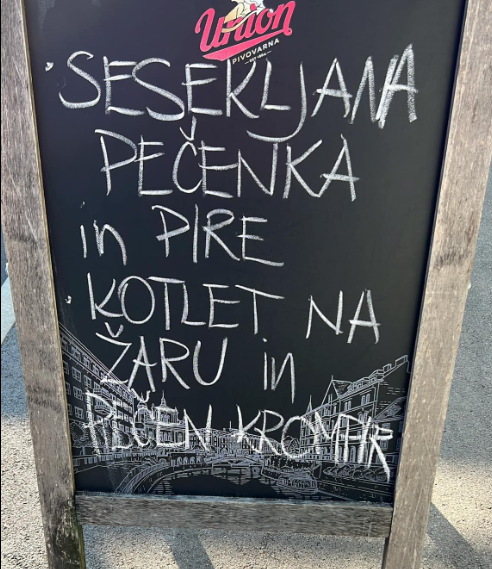 Union
PIVOVARNA
SESEKLJANA
PEČENKA
in PIRE
KOTLET NA
ŽARU in
PEČEN KROMPIR